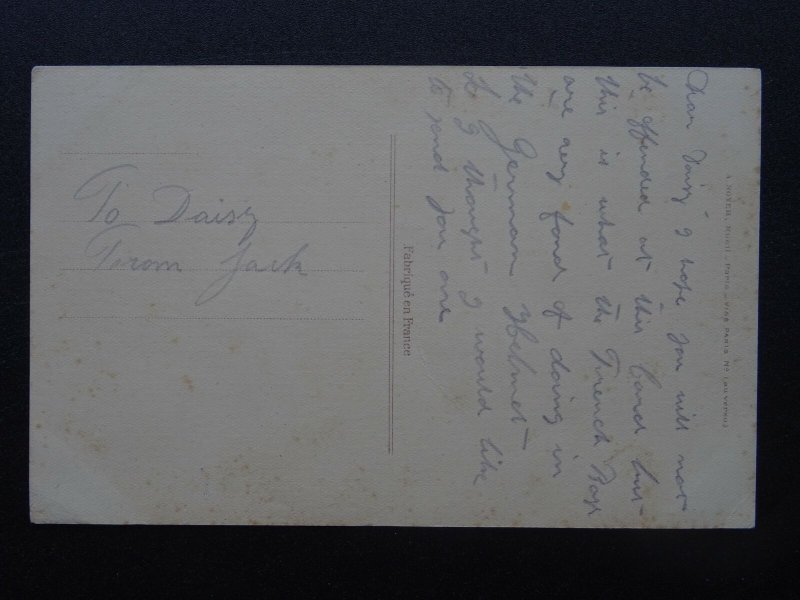 Dear Daisy I hope you will not
be offended at this Card but
this is what the French Boys
are very fond of doing in
the German Helmet
So I thought I would like
to send you one
Fabriqué en France
To Daisy
From Jack
A. NOYER, Paris